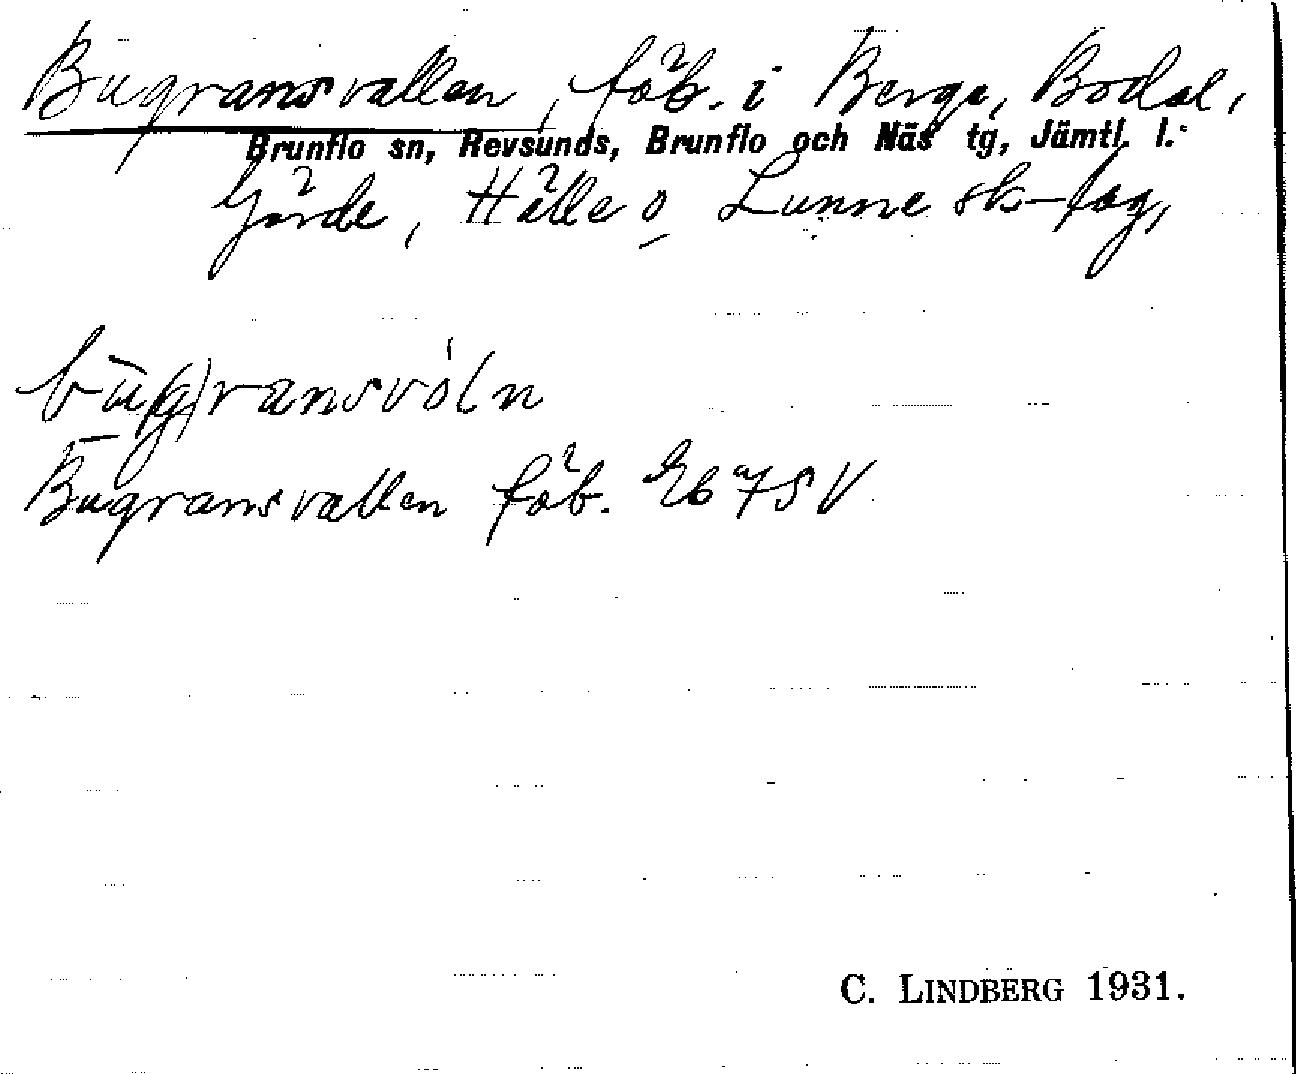 Bugransvallen, fäb. i Berge, Bodal,
Brunflo sn, Revsunds, Brunflo och Näs tg, Jämtl. l.
Gärde, Hälle o Lunne sk-lag,
bu(g)ransvóln
Bugransvallen fäb. Eb 7SV
C. LINDBERG 1931.